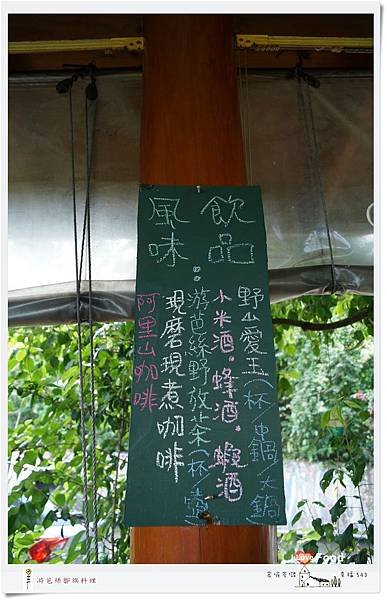 風味飲品：
野山愛玉(杯/中鍋/大鍋
小米酒．蜂酒．蝦酒
游芭絲野放茶(杯/壺
現磨現煮咖啡
阿里山咖啡
Love Food
游芭絲鄒族料理
幸福 543